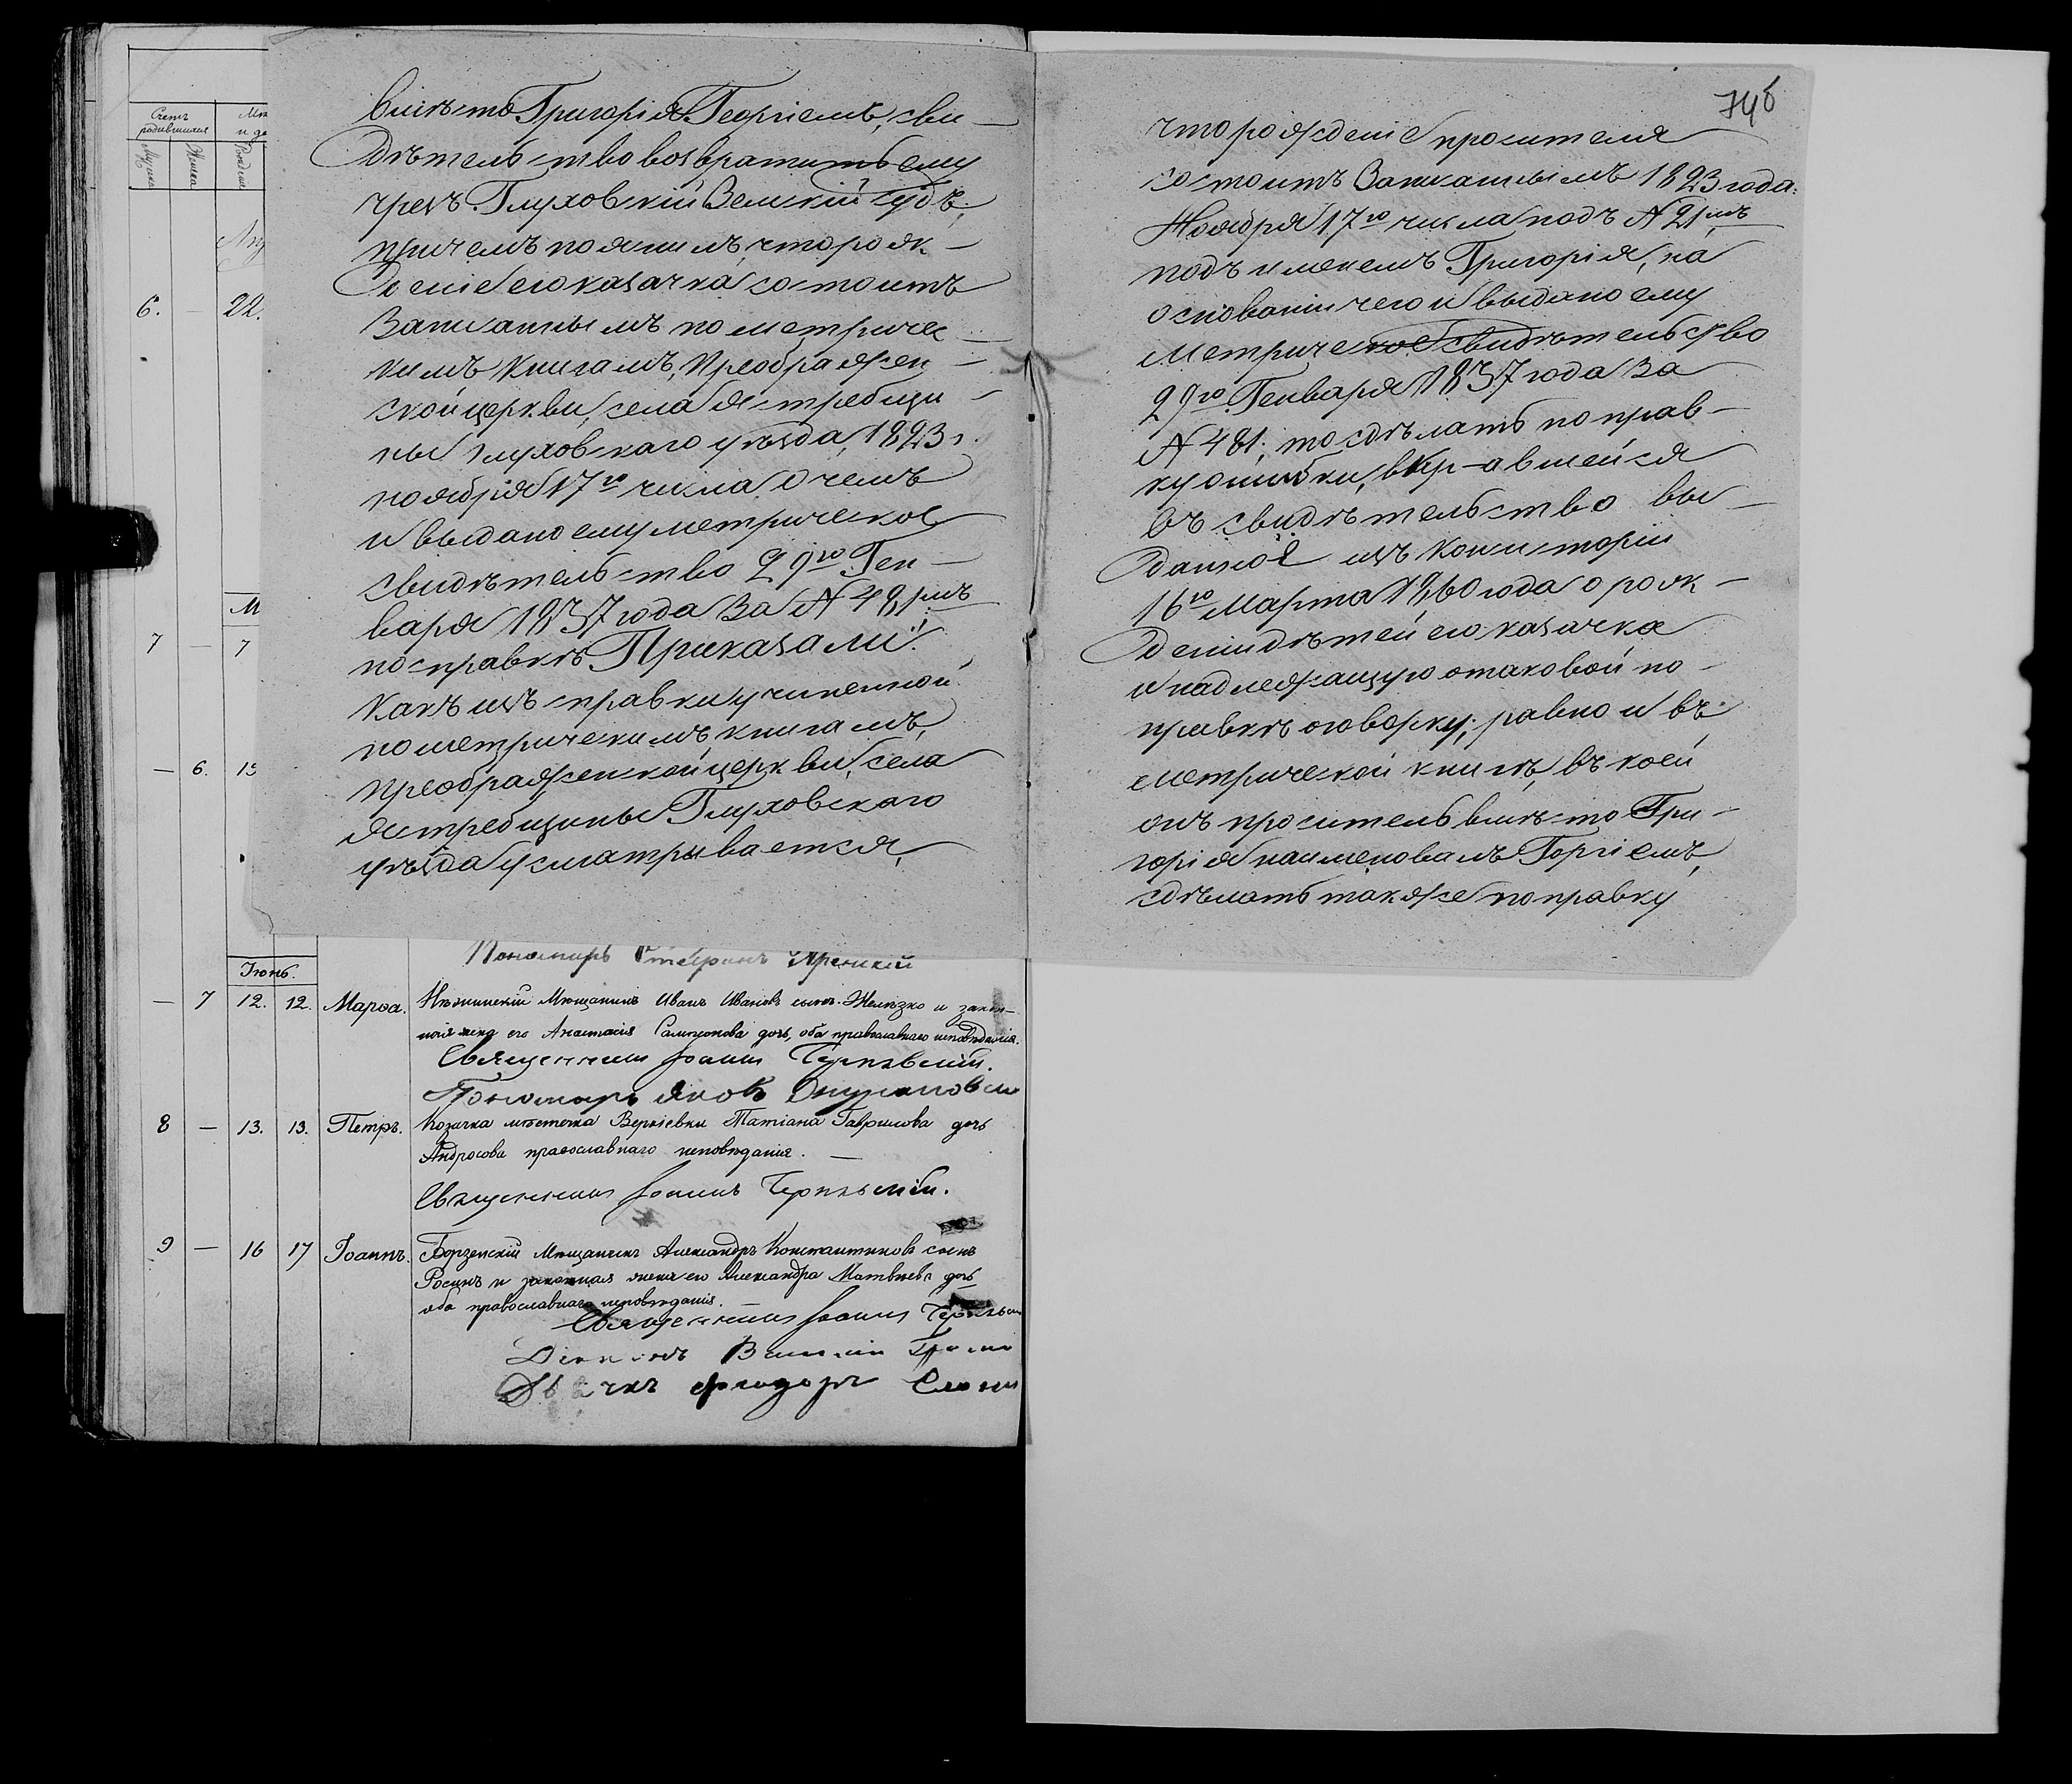 Счетъ родившихся
Мужска
Женска
6. — 22.
7 — 7
— 6.
вмѣсто Григорія Георгіемъ, сви-
дѣтельство возвратить ему
чрезъ Глуховскій Земскій Судъ;
причемъ пояснилъ, что рож-
деніе его казачка состоитъ
Записаннымъ по метричес-
кимъ Книгамъ, Преображен-
ской церкви, села Ястребщи-
ны Глуховскаго уѣзда, 1823 г.
ноября 17го числа, о чемъ
и выдано ему метрическое
свидѣтельство 29го Ген-
варя 1837 года За № 481мъ
по справкѣ Приказали:
Какъ изъ справки учиненной
по метрическимъ книгамъ,
преображенской церкви, села
Ястребщины Глуховскаго
уѣзда усматривается,
что рожденіе просителя
состоитъ Записаннымъ 1823 года.
Ноября 17го числа подъ № 21мъ
подъ именемъ Григорія, на
основаніи чего и выдано ему
Метрическое свидѣтельство
29го Генваря 1837 года За
№ 481; то сдѣлать поправ-
ку ошибки, вкравшейся
въ свидѣтельство вы-
данное изъ Консисторіи
16го Марта 1860 года о рож-
деніи дѣтей его казачка
и надлежащую о таковой по-
правкѣ оговорку; равно и въ
метрической книгѣ, въ коей
онъ проситель вмѣсто Гри-
горія наименованъ Горгіемъ,
сдѣлать также поправку
Пономарь Стефанъ
Іюнь.
— 7 12. 12. Марѳа. Нѣжинскій Мѣщанинъ Иванъ Ивановъ сынъ Желѣзко и закон-
ная жена его Анастасія Сампсонова дочь, оба православнаго исповѣданія.
Священникъ Іоаннъ
Пономарь Яковъ
8 — 13. 13. Петръ. Козачка мѣстечка Веркіевки Татіана Гаврилова дочь
Андросова православнаго исповѣданія. —
Священникъ Іоаннъ
9 — 16 17 Іоаннъ. Борзенскій Мѣщанинъ Александръ Константиновъ сынъ
Росинъ и законная жена его Александра Матвѣева дочь
оба православнаго исповѣданія.
Священникъ Іоаннъ
Діаконъ Василій
Дьячкъ Феодоръ